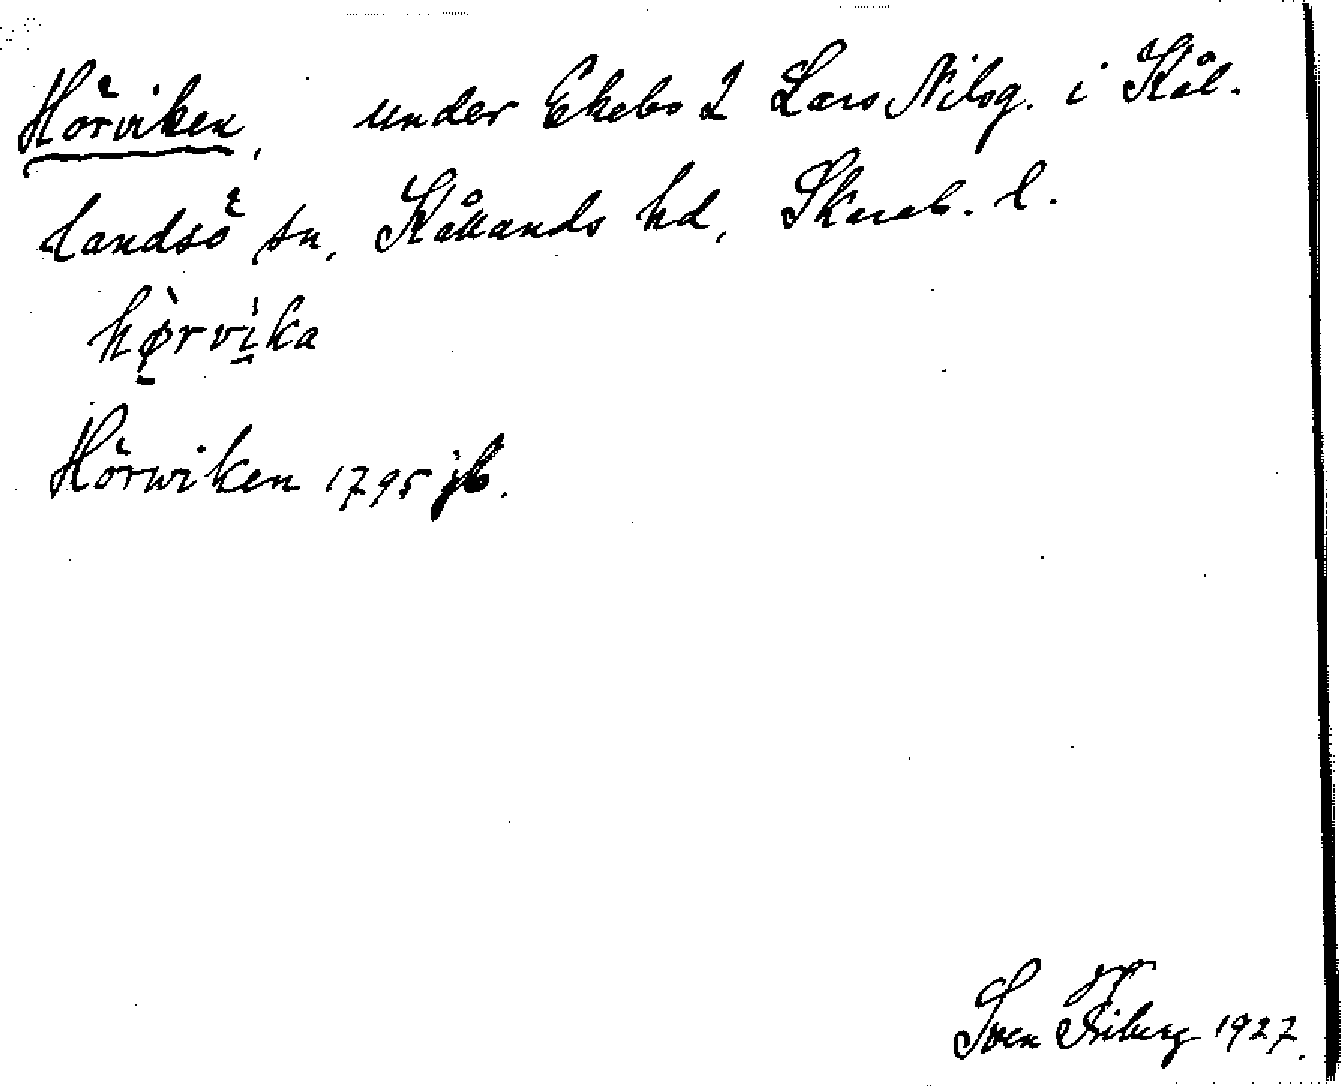 Hörviken, under Ekebo 2 Lars Nilsg. i Kål-
landsö sn, Kållands hd, Skarab. l.
hø̀rvìka
Hörwiken 1795 jb.
Sven Friberg 1927.